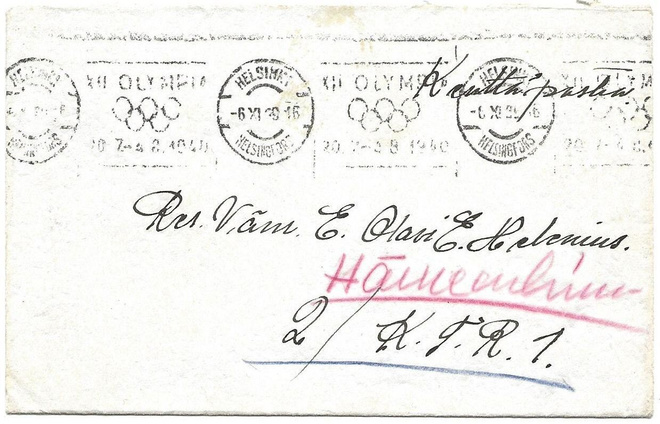 HELSINKI XII OLYMPIA HELSINKI XII OLYMPIA HELSINKI XII OLYMPIA
-6 XI 39-16 -6 XI 39-16
20.7-4.8.1940 HELSINGFORS 20.7-4.8.1940 HELSINGFORS 20.7-4.8.1940
HELSINGFORS
Kenttä postia
Res. Väm. E. Olavi E. Helenius.
Hämeenlinna
2/ K.T.R. 1.